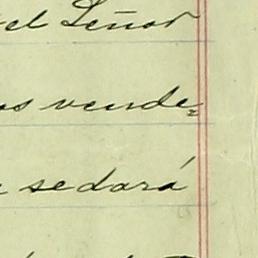 el Señor
os vende=
sedará